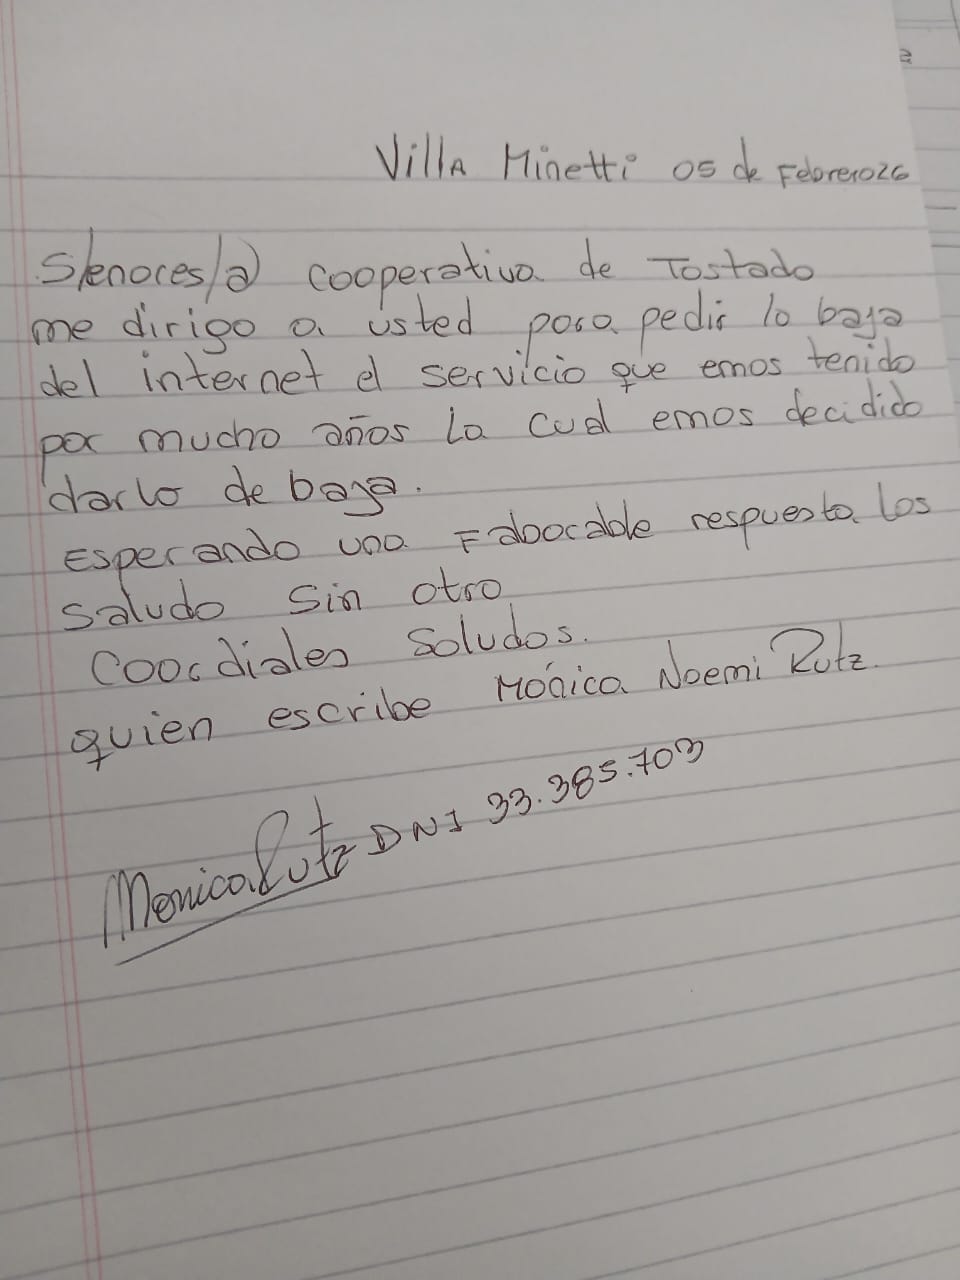 Villa Minetti 05 de Febrero26
S/enores/a) cooperativa de Tostado
me dirigo a usted para pedir la baja
del internet el servicio que emos tenido
por mucho años La cual emos decidido
darlo de baja.
Esperando una Faborable respuesta los
saludo sin otro
Coordiales Saludos.
quien escribe Mónica Noemi Rutz.
Monica Rutz DNI 33.385.703